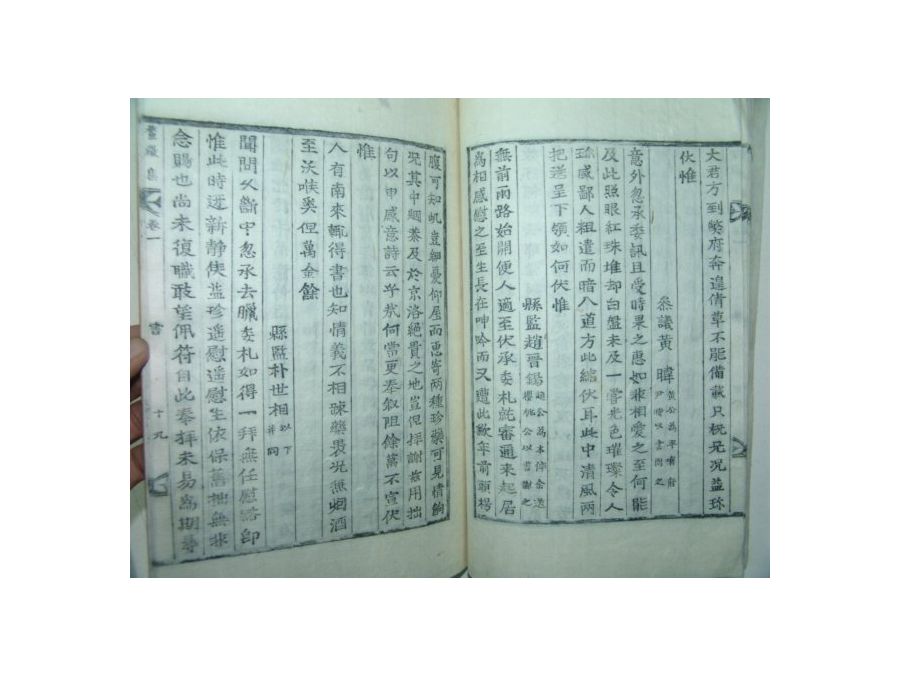 大君方到箕府奔遑倩草不能備載只祝兄况益珍
伏惟
叅議黃暐
意外忽承委訊且受時果之惠如非相愛之至何能
及此照眼紅珠堆却白盤未及一嘗光色璀璨令人
感鄙人粗遣而暗八道方此縮伏耳此中清風兩
把送呈下領如何伏惟
縣監趙晉錫
無前雨路始開便人適至伏承委札就審通來起居
萬相感慰之至生長在呻吟而又遭此歉年前頭
腹可知 豈細憂仰屋而 惠寄兩種珍藥可見情餉
况其中烟茶及於京洛絕貴之地豈但拜謝玆用拙
句以申感意詩云乎哉何嘗更奉叙阻餘萬不宣伏
惟
人有南來輒得書也知情義不相踈藥裹况無烟酒
至沃喉奚但萬金餘
縣監朴世相 以下并同
聞問久斷中忽承去臘委札如得一拜無任慰 即
惟此時迓新靜候益珍遙慰遙慰生依保舊拙無
念賜也尚未復職敢望佩符自此奉拜未易爲期
卷一
書
十九